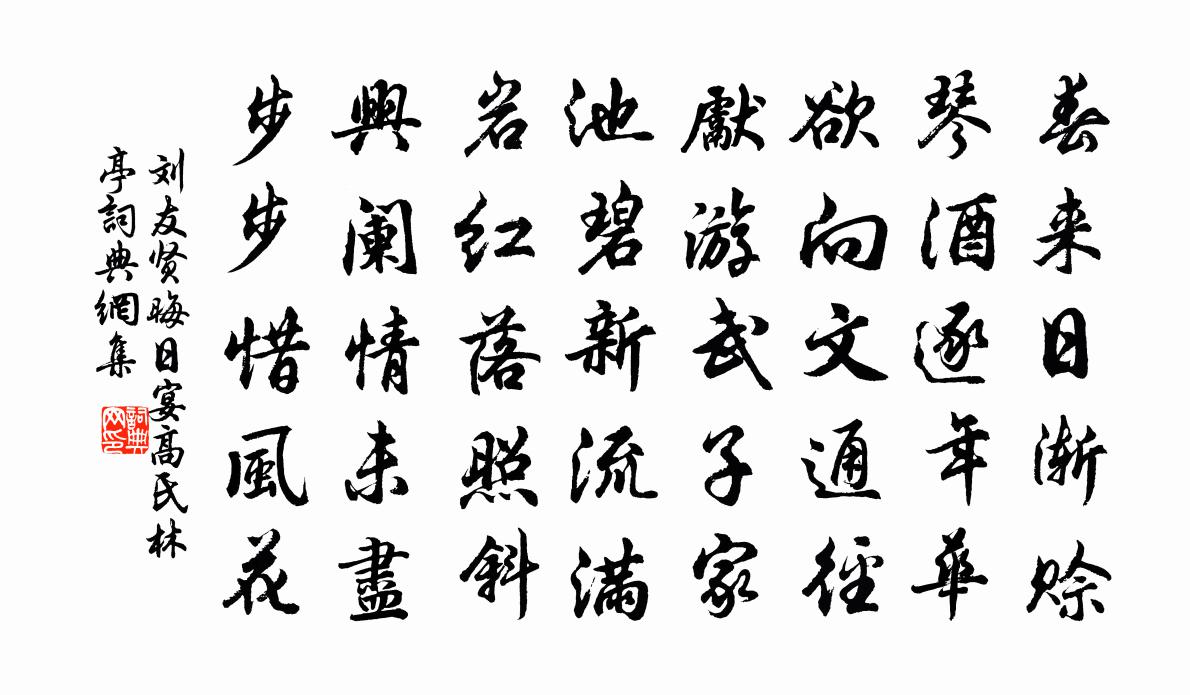 春来日渐赊
琴酒逐年華
欲向文通徑
獻游武子家
池碧新流滿
岩红落照斜
興阑情未盡
步步惜風花
刘友贤晦日宴高氏林
亭詞典網集
詞典网印